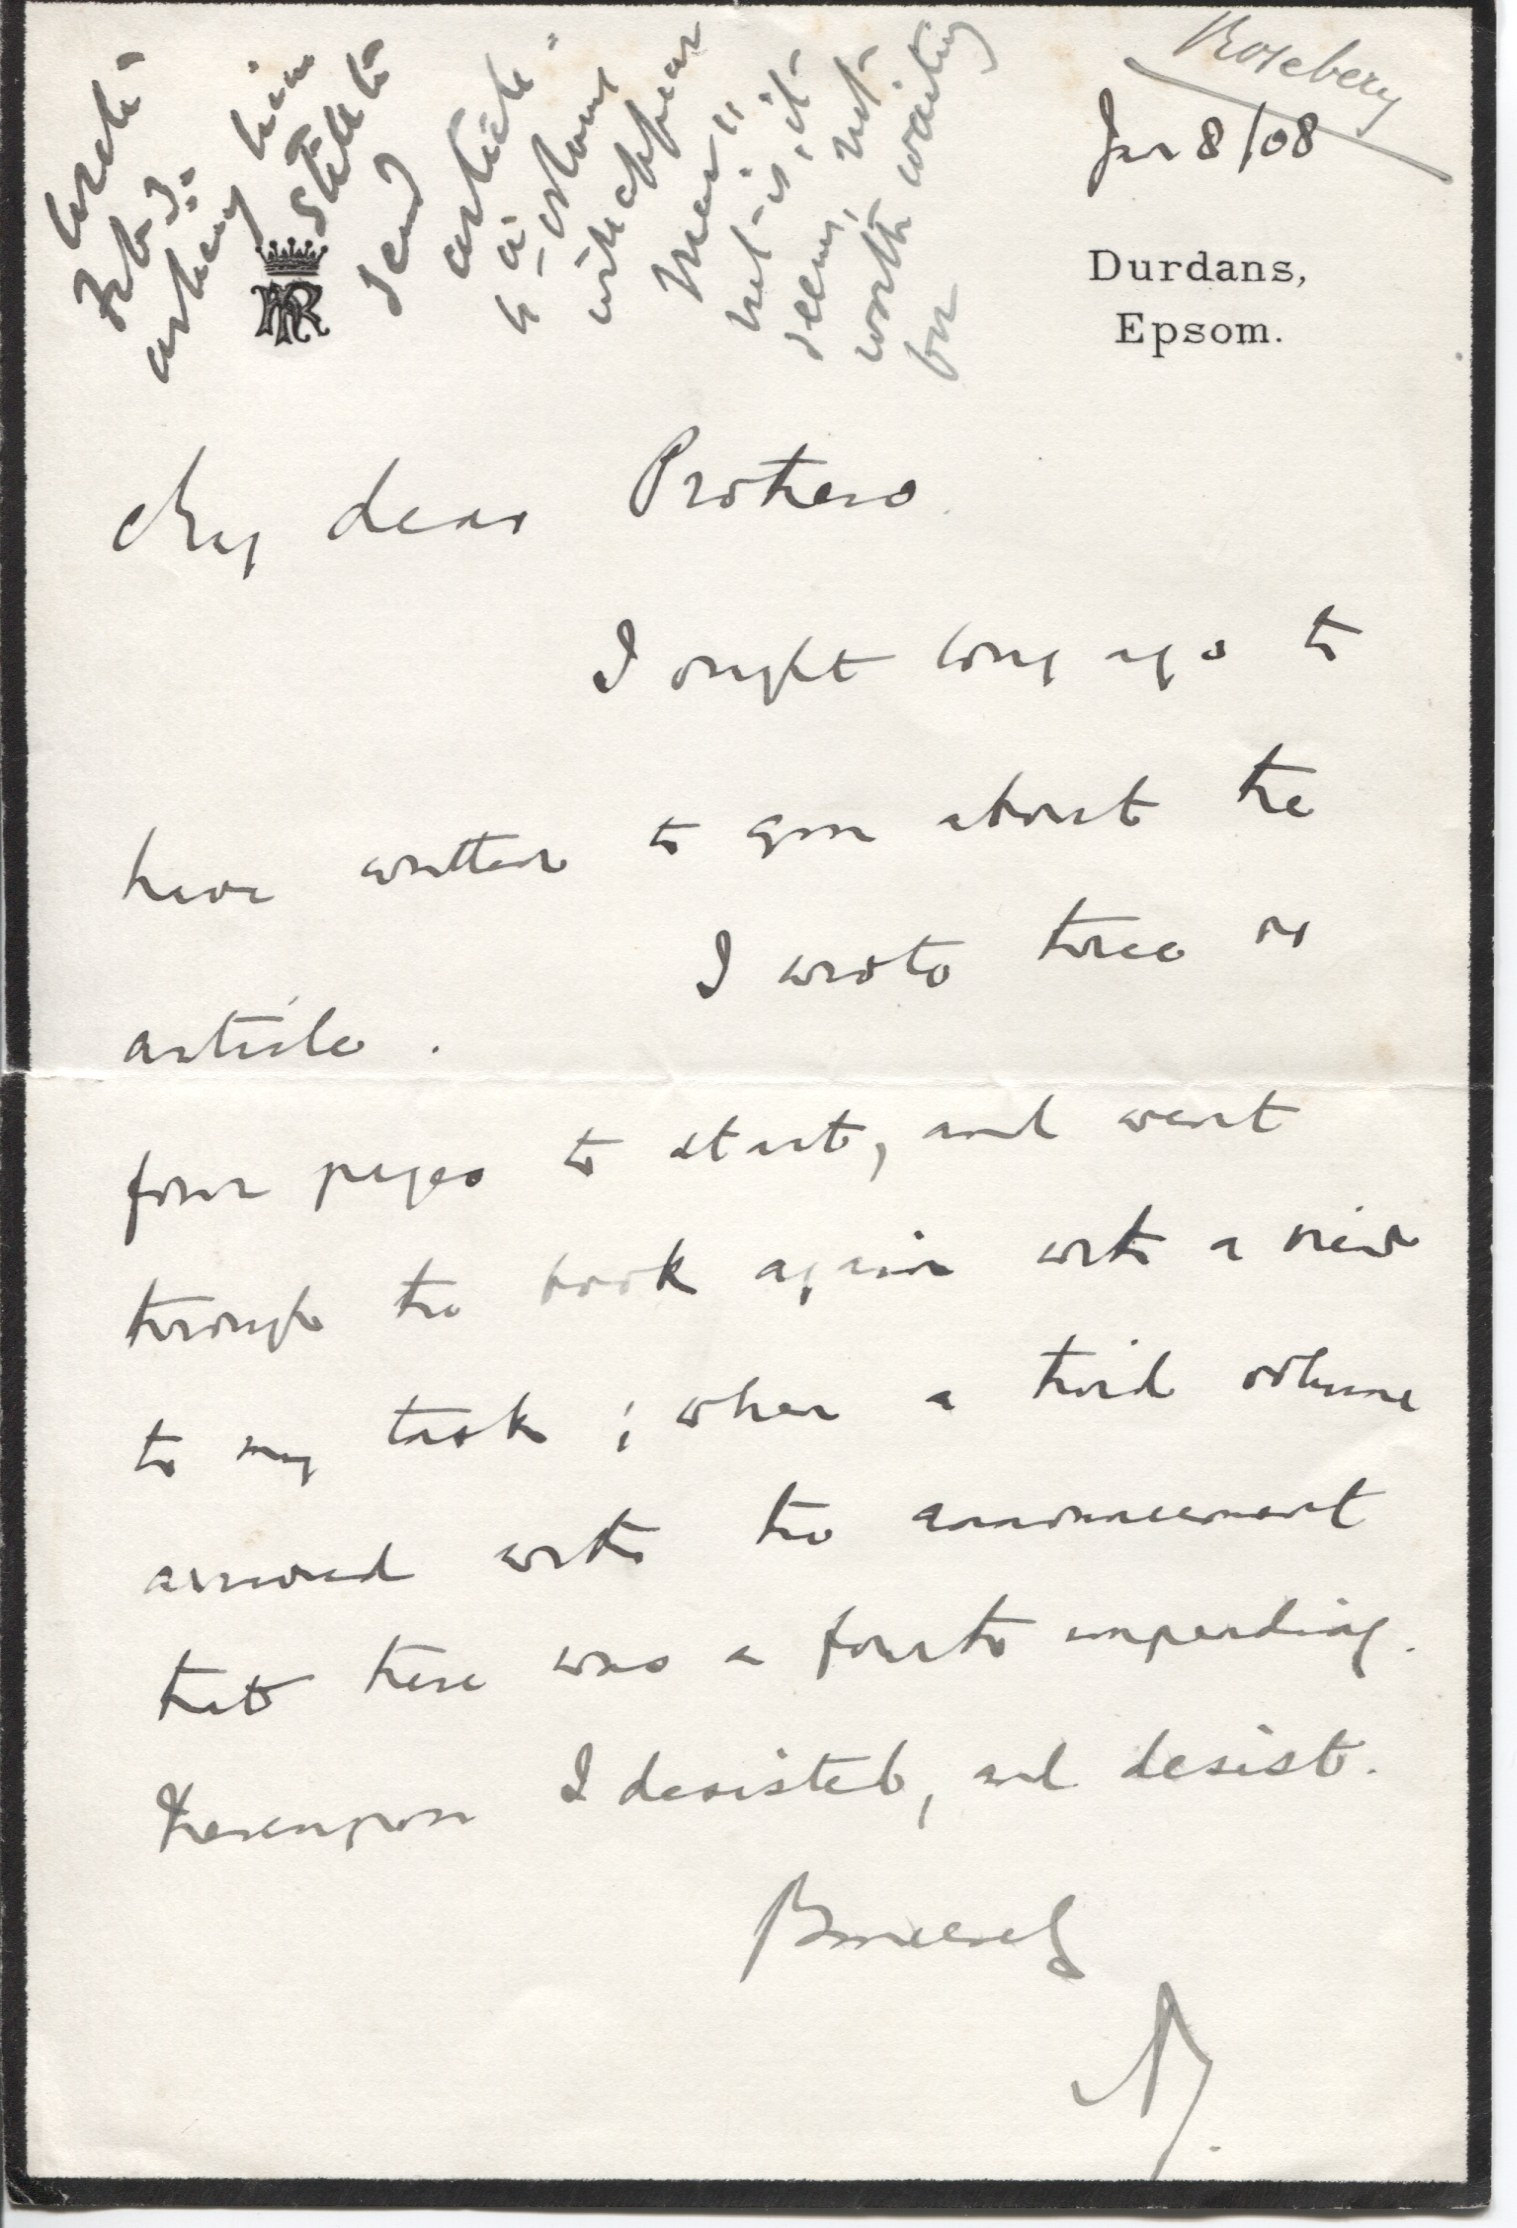 Rosebery
Jan 8/08
Durdans,
Epsom.
wrote
Feb 3:
asking him
still to
send
article
4th volume
will appear
not is, it
seems, not
worth waiting
for
My dear Prothero
I ought long ago to
have written to you about the
article. I wrote three or
four pages to start, and went
through the book again with a view
to my task; when a third volume
arrived with the announcement
that there was a fourth impending.
Thereupon I desisted, and desist.
Sincerely
AR.